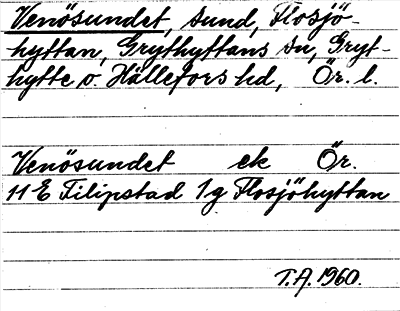 Venösundet, sund, Flosjö-
hyttan, Grythyttans sn, Gryt-
hytte o. Hällefors hd, Ör. l.
Venösundet ek Ör.
11 E Filipstad 1g Flosjöhyttan
T.A. 1960.